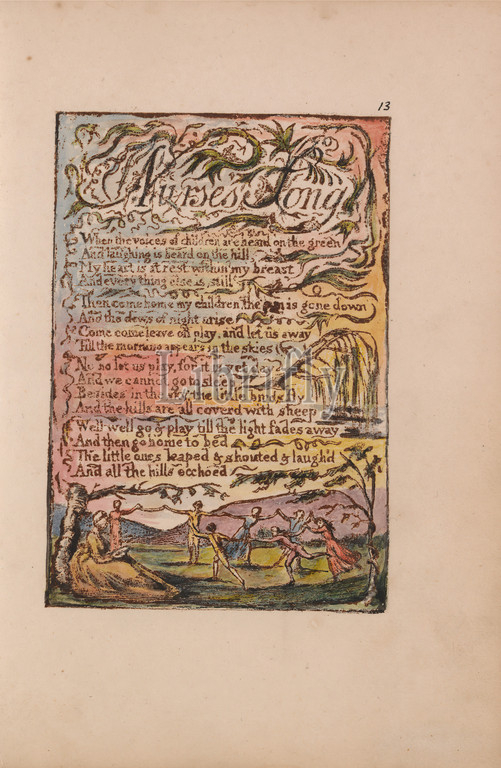 13
Nurses Song
When the voices of children are heard on the green
And laughing is heard on the hill
My heart is at rest within my breast
And every thing else is still
Then come home my children, the sun is gone down
And the dews of night arise
Come come leave off play, and let us away
Till the morning appears in the skies
No no let us play, for it is yet day
And we cannot go to sleep
Besides in the sky, the little birds fly
And the hills are all coverd with sheep
Well well go & play till the light fades away
And then go home to bed
The little ones leaped & shouted & laugh'd
And all the hills ecchoed